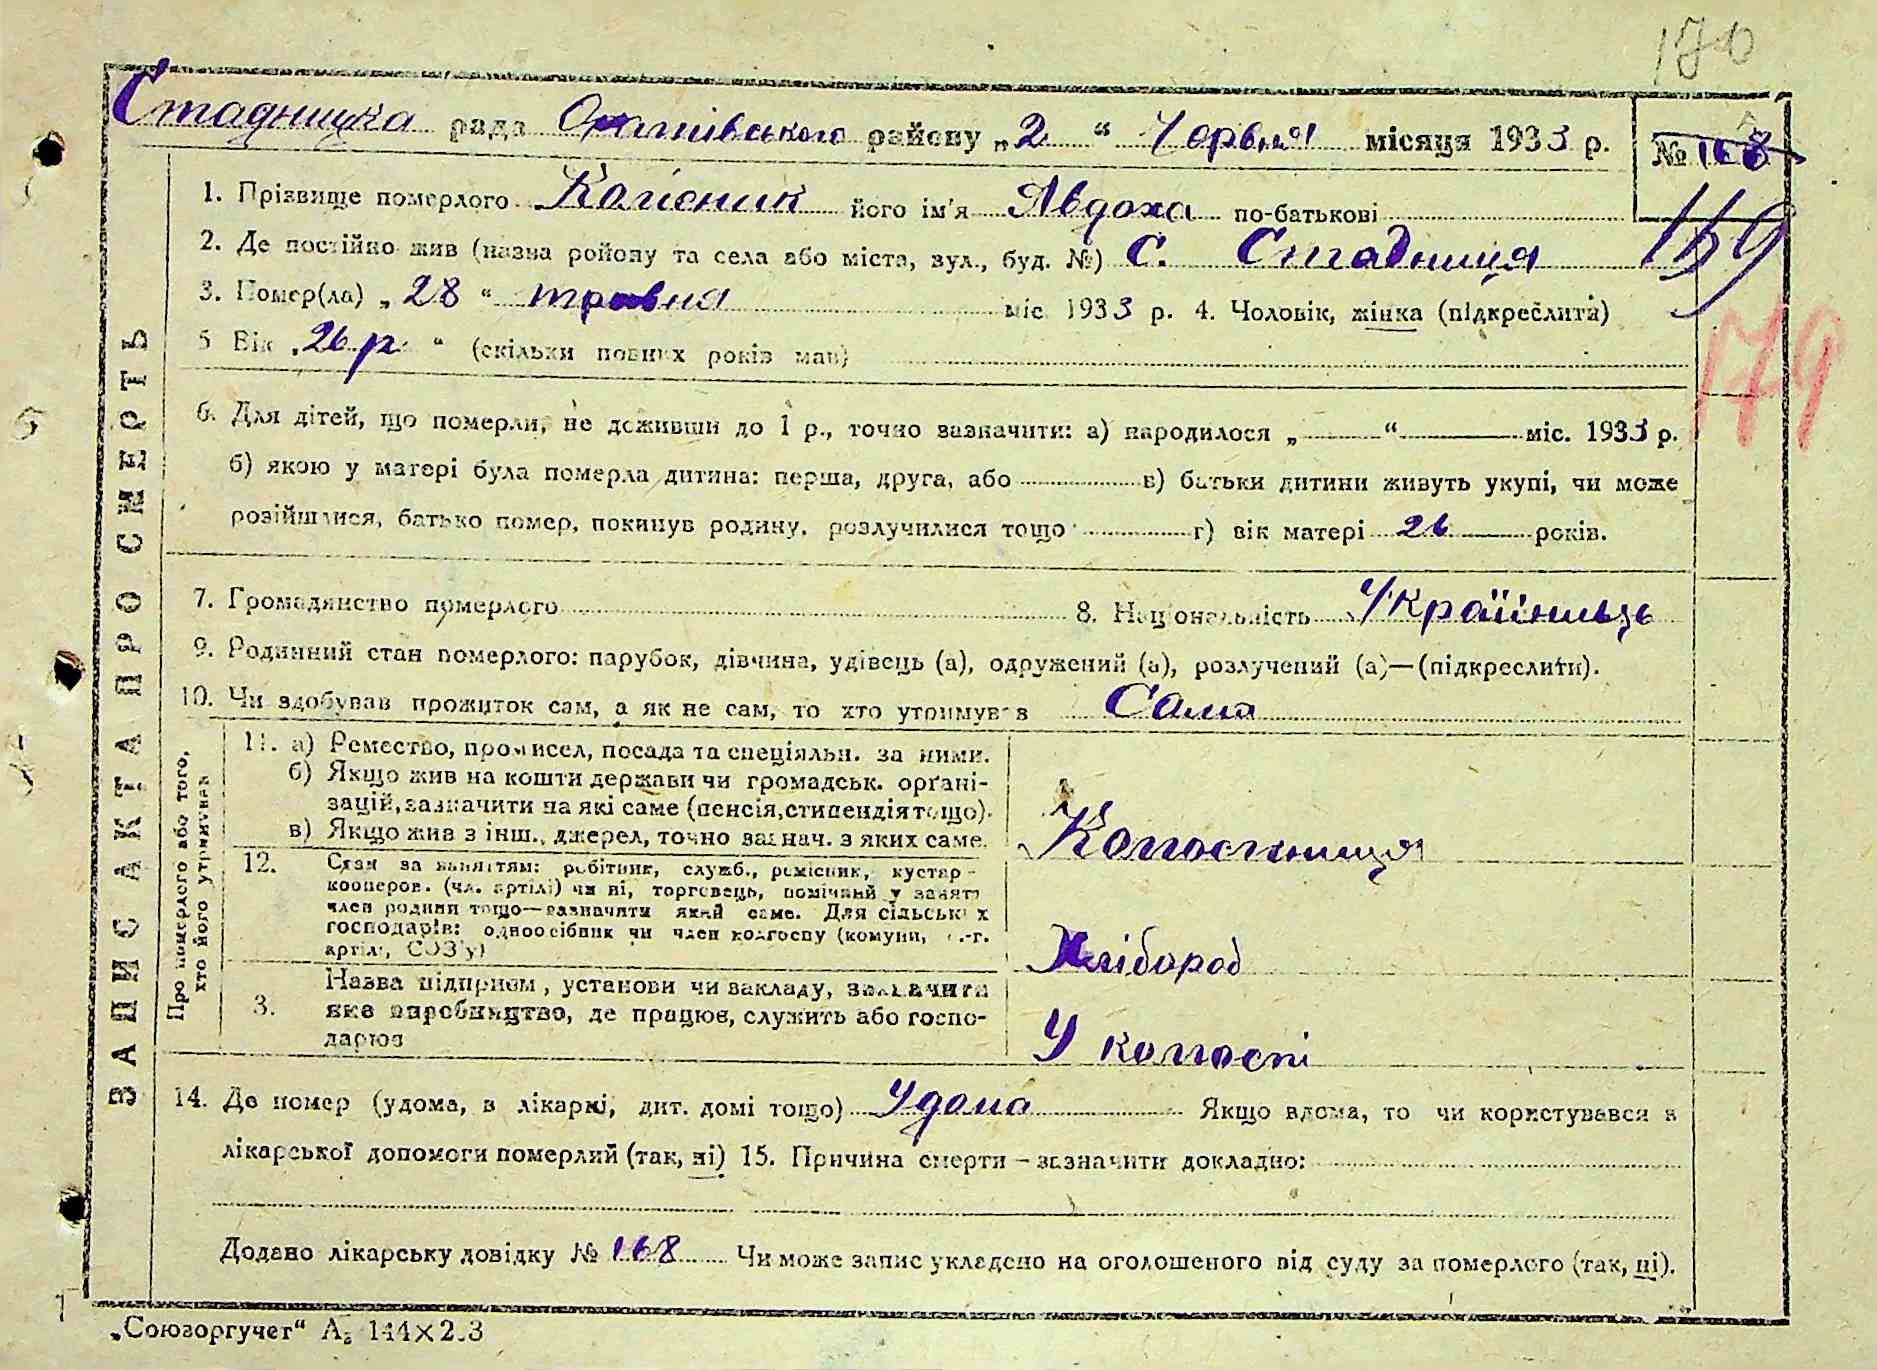 170
Стадницка рада Оратівського району „2“ Червня місяця 1933 р.
№ 168
159
179
1. Прізвище померлого Колісник його ім'я Явдоха по-батькові
2. Де постійно жив (назва ройону та села або міста, вул., буд. №) С. Стадниця
3. Помер(ла) „28“ травня міс 1933 р. 4. Чоловік, жінка (підкреслити)
5 Вік „26 р.“ (скільки повних років мав)
6. Для дітей, що померли, не доживши до 1 р., точно зазначити: а) народилося „ “ міс. 1933 р.
б) якою у матері була померла дитина: перша, друга, або в) батьки дитини живуть укупі, чи може
розійшлися, батько помер, покинув родину, розлучилися тощо г) вік матері 26 років.
7. Громадянство померлого 8. Національність Українець
9. Родинний стан померлого: парубок, дівчина, удівець (а), одружений (а), розлучений (а)—(підкреслити).
10. Чи здобував прожиток сам, а як не сам, то хто утримував Сама
ЗАПИС АКТА ПРО СМЕРТЬ
Про померлого або того,
хто його утримував
11. а) Ремество, промисел, посада та спеціяльн. за ними.
б) Якщо жив на кошти держави чи громадськ. орґані-
зацій, зазначити на які саме (пенсія, стипендія тощо).
в) Якщо жив з інш., джерел, точно зазнач. з яких саме.
Колгоспниця
12. Стан за заняттям: робітник, служб., ремісник, кустар-
кооперов. (чл. артілі) чи ні, торговець, помічний у занятт
член родини тощо—зазначити який саме. Для сільських
господарів: одноосібник чи член колгоспу (комуни, с.-г.
артілі, СОЗ'у)
Хлібороб
3. Назва підприєм, установи чи закладу, зазначити
яке виробництво, де працює, служить або госпо-
дарює
У колгоспі
14. Де помер (удома, в лікарні, дит. домі тощо) Удома Якщо вдома, то чи користувався в
лікарської допомоги померлий (так, ні) 15. Причина смерти – зазначити докладно:
Додано лікарську довідку № 168 Чи може запис укладено на оголошеного від суду за померлого (так, ні).
„Союзоргучет“ А₅ 144×2.3